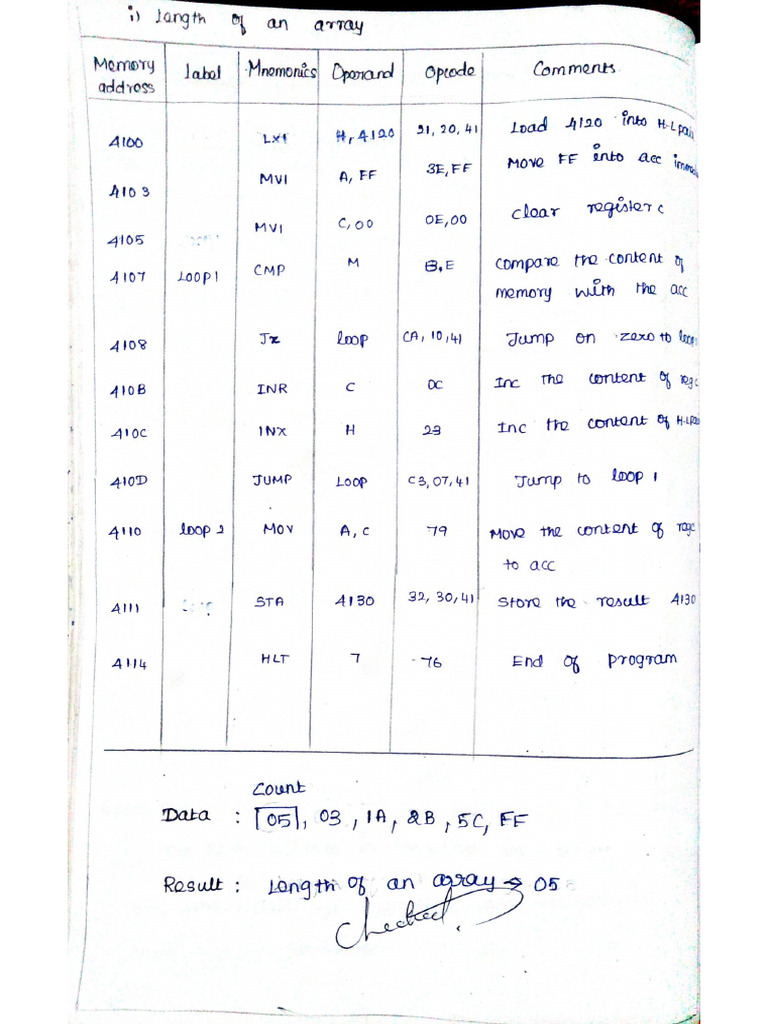 i) Length of an array
Memory address Label Mnemonics Operand Opcode Comments
4100 LXI H, 4120 21, 20, 41 Load 4120 into H-L pair
4103 MVI A, FF 3E, FF Move FF into acc
4105 MVI C, 00 0E, 00 Clear register C
4107 LOOP1 CMP M B, E Compare the content of
memory with the acc
4108 Jz loop CA, 10, 41 Jump on zero to loop
410B INR C 0C Inc the content of reg c
410C INX H 23 Inc the content of H-L pair
410D JUMP LOOP C3, 07, 41 Jump to loop 1
4110 loop 2 MOV A, C 79 Move the content of regc
to acc
4111 STA 4130 32, 30, 41 Store the result 4130
4114 HLT 7 76 End of program
Count
Data : 05, 03, 1A, 2B, 5C, FF
Result : Length of an array → 05
Checked